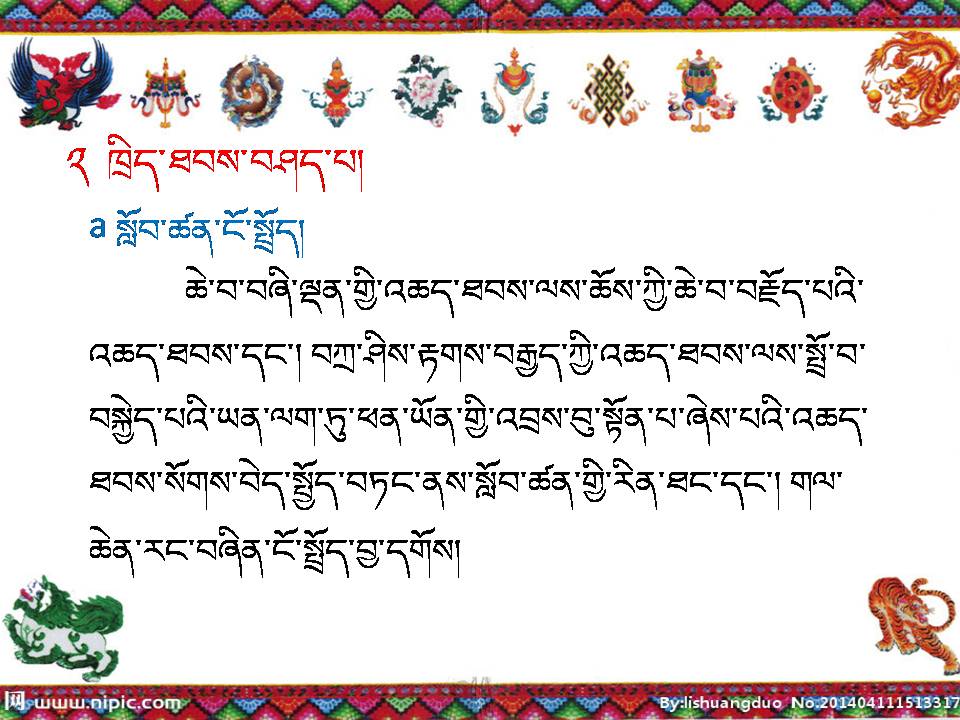 ༢ ཁྲིད་ཐབས་བཤད་པ།
a སློབ་ཚན་ངོ་སྤྲོད།
ཆེ་བ་བཞི་ལྡན་གྱི་འཆད་ཐབས་ལས་ཆོས་ཀྱི་ཆེ་བ་བརྗོད་པའི་
འཆད་ཐབས་དང་། བཀྲ་ཤིས་རྟགས་བརྒྱད་ཀྱི་འཆད་ཐབས་ལས་སྤྲོ་བ་
བསྐྱེད་པའི་ཡན་ལག་ཏུ་ཕན་ཡོན་གྱི་འབྲས་བུ་སྟོན་པ་ཞེས་པའི་འཆད་
ཐབས་སོགས་བེད་སྤྱོད་བཏང་ནས་སློབ་ཚན་གྱི་རིན་ཐང་དང་། གལ་
ཆེན་རང་བཞིན་ངོ་སྤྲོད་བྱ་དགོས།
网 www.nipic.com
By:lishuangduo No:201404111513317